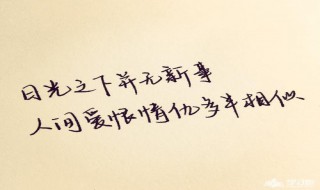 日光之下并无新事
人间爱恨情仇多半相似